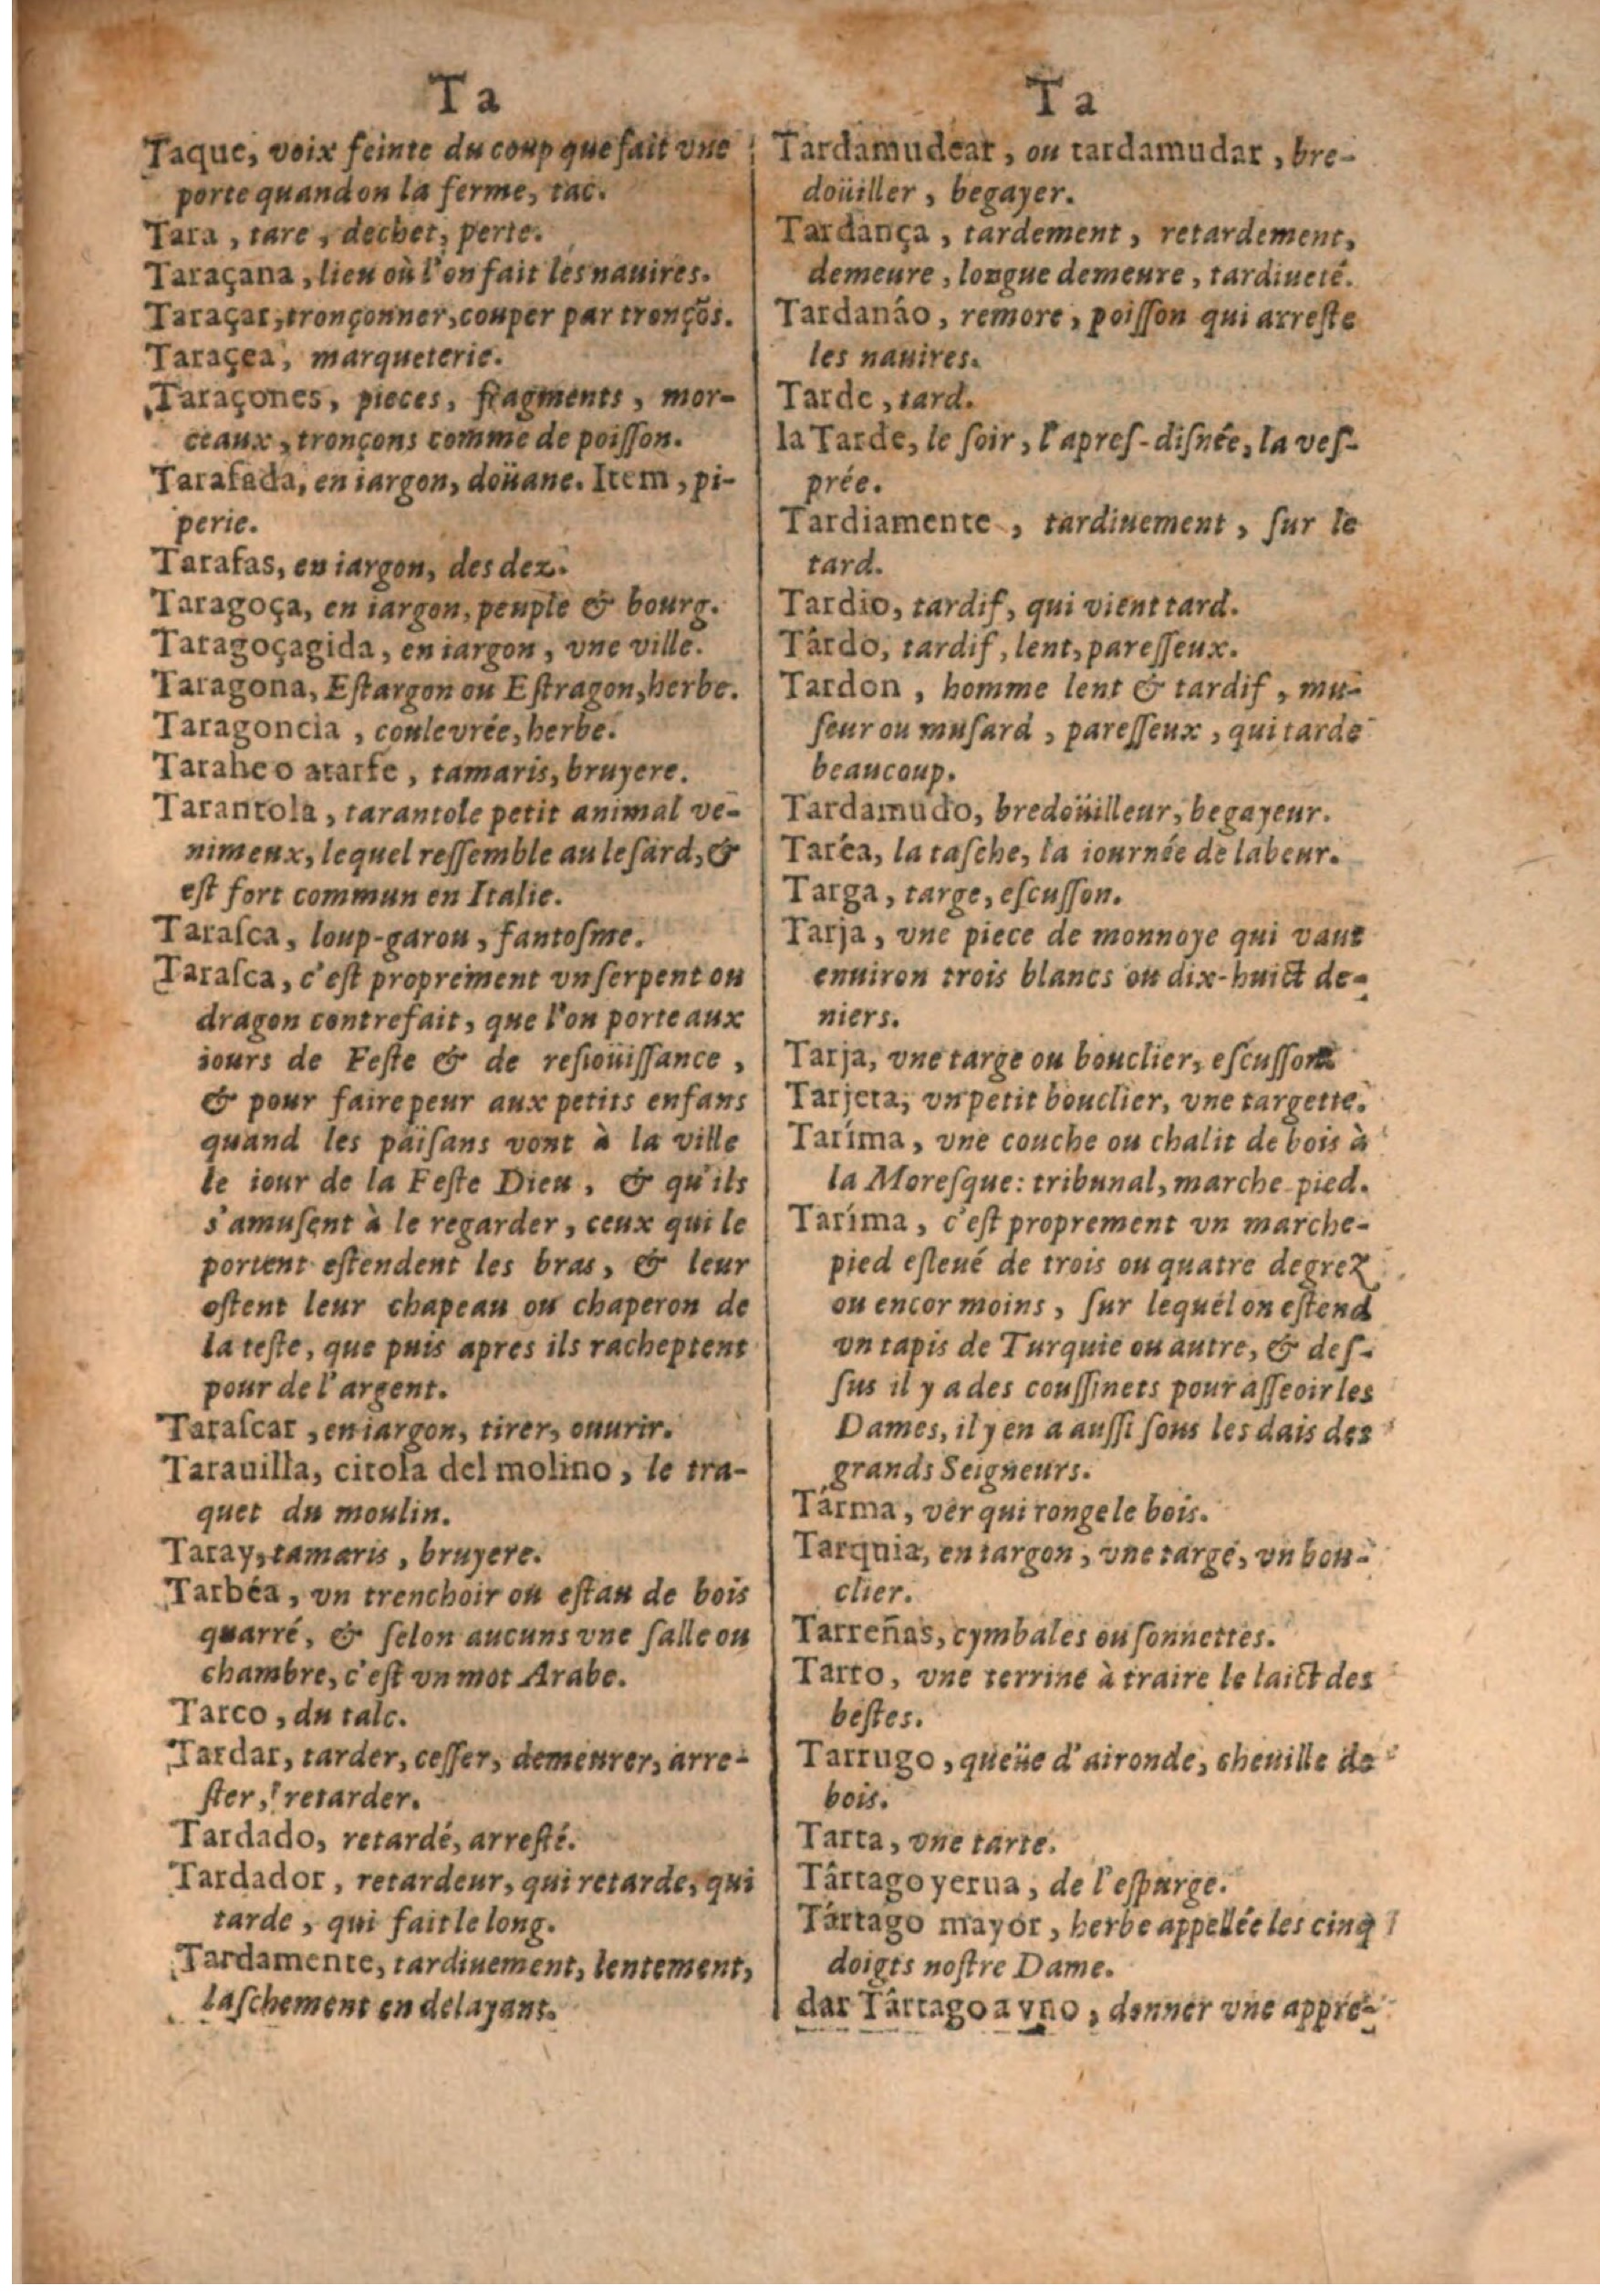 Ta
Taque, voix feinte du coup que fait vne
porte quand on la ferme, tac.
Tara, tare, dechet, perte.
Taraçana, lieu où l'on fait les nauires.
Taraçar, tronçonner, couper par tronçõs.
Taraçea, marqueterie.
Taraçones, pieces, fragments, mor-
ceaux, tronçons comme de poiſſon.
Tarafada, en iargon, doüane. Item, pi-
perie.
Tarafas, en iargon, des dez.
Taragoça, en iargon, peuple & bourg.
Taragoçagida, en iargon, vne ville.
Taragona, Eſtargon ou Eſtragon, herbe.
Taragoncia, coulevrée, herbe.
Tarahe o atarfe, tamaris, bruyere.
Tarantola, tarantole petit animal ve-
nimeux, lequel reſſemble au leſard, &
eſt fort commun en Italie.
Taraſca, loup-garou, fantoſme.
Taraſca, c'eſt proprement vn ſerpent ou
dragon contrefait, que l'on porte aux
iours de Feſte & de reſioüiſſance,
& pour faire peur aux petits enfans
quand les païſans vont à la ville
le iour de la Feſte Dieu, & qu'ils
s'amuſent à le regarder, ceux qui le
portent eſtendent les bras, & leur
oſtent leur chapeau ou chaperon de
la teſte, que puis apres ils racheptent
pour de l'argent.
Taraſcar, en iargon, tirer, ouurir.
Tarauilla, citola del molino, le tra-
quet du moulin.
Taray, tamaris, bruyere.
Tarbéa, vn trenchoir ou eſtau de bois
quarré, & ſelon aucuns vne ſalle ou
chambre, c'eſt vn mot Arabe.
Tarco, du talc.
Tardar, tarder, ceſſer, demeurer, arre-
ſter, retarder.
Tardado, retardé, arreſté.
Tardador, retardeur, qui retarde, qui
tarde, qui fait le long.
Tardamente, tardiuement, lentement,
laſchement en delayant.
Ta
Tardamudear, ou tardamudar, bre-
doüiller, begayer.
Tardança, tardement, retardement,
demeure, longue demeure, tardiueté.
Tardanáo, remore, poiſſon qui arreſte
les nauires.
Tarde, tard.
la Tarde, le ſoir, l'apreſ-diſnée, la veſ-
prée.
Tardiamente, tardiuement, ſur le
tard.
Tardio, tardif, qui vient tard.
Târdo, tardif, lent, pareſſeux.
Tardon, homme lent & tardif, mu-
ſeur ou muſard, pareſſeux, qui tarde
beaucoup.
Tardamudo, bredoüilleur, begayeur.
Taréa, la taſche, la iournée de labeur.
Targa, targe, eſcuſſon.
Tarja, vne piece de monnoye qui vaut
enuiron trois blancs ou dix-huict de-
niers.
Tarja, vne targe ou bouclier, eſcuſſon.
Tarjeta, vn petit bouclier, vne targette.
Taríma, vne couche ou chalit de bois à
la Moreſque: tribunal, marche-pied.
Taríma, c'eſt proprement vn marche-
pied eſleué de trois ou quatre degrez
ou encor moins, ſur lequel on eſtend
vn tapis de Turquie ou autre, & deſ-
ſus il y a des couſſinets pour aſſeoir les
Dames, il y en a auſſi ſous les dais des
grands Seigneurs.
Târma, ver qui ronge le bois.
Tarquia, en iargon, vne targe, vn bou-
clier.
Tarreñas, cymbales ou ſonnettes.
Tarro, vne terrine à traire le laict des
beſtes.
Tarrugo, queüe d'aironde, cheuille de
bois.
Tarta, vne tarte.
Târtago yerua, de l'eſpurge.
Târtago mayor, herbe appellée les cinq
doigts noſtre Dame.
dar Târtago a vno, donner vne appre-